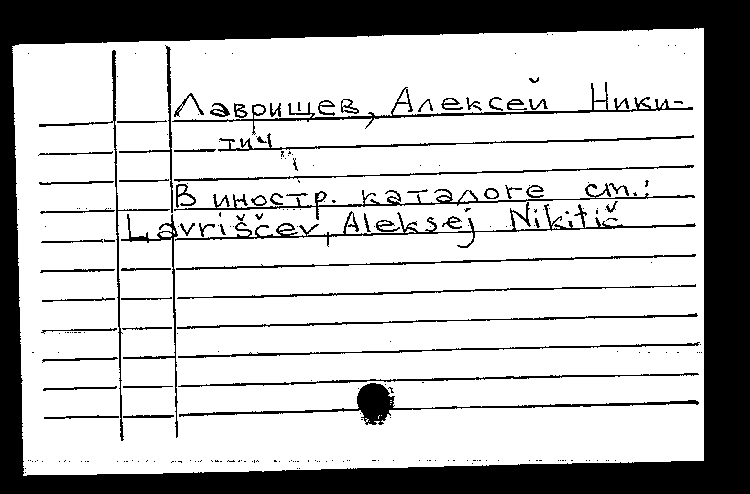 Лаврищев, Алексей Ники-
тич
В иностр. каталоге ст.:
Lavriščev, Aleksej Nikitič